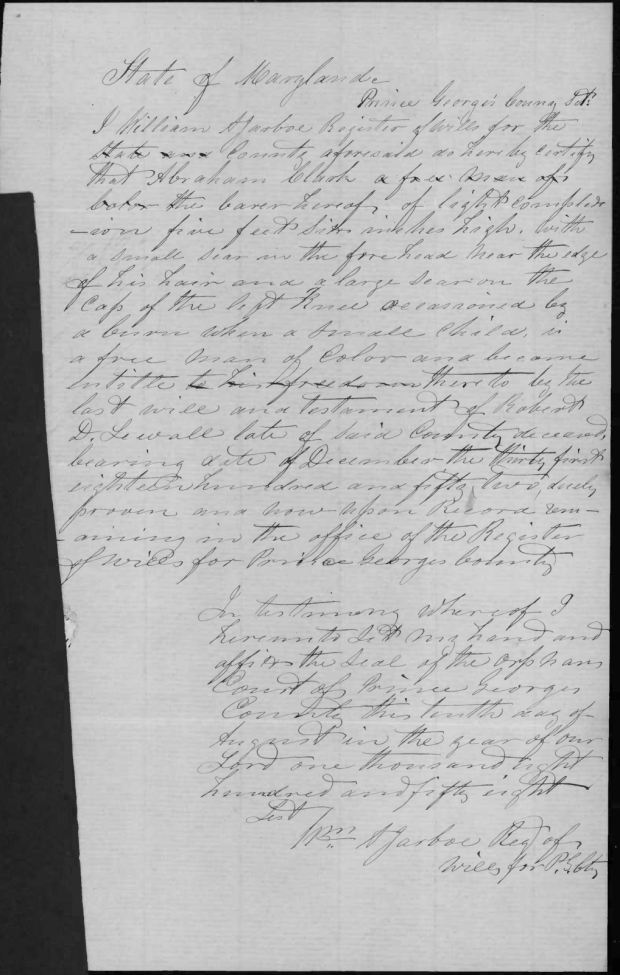 State of Maryland
Prince George's Couny Sct:
I William A Jarboe Register of Wills for the
State and County aforesaid do hereby certify
that Abraham Clark a free man of
color the barer hereof, of light complex
-ion five feet Six inches high, with
a small scar in the forehead near the edge
of his hair and a large scar on the
Cap of the left Knee occassioned by
a burn when a small child, is
a free man of Color and became
intitle to his freedom thereto by the
last will and testament of Robert
D. Sewall late of said County deceased,
bearing date of December the thirty first
eighteen hundred and fifty two, duly
proven and now upon Record rem-
-aining in the office of the Register
of Wills for Prince Georges County
In testimony whereof I
hereunto Set my hand and
affix the Seal of the Orphans
Court of Prince Georges
County this tenth day of
August in the year of our
Lord one thousand eight
hundred and fifty eight
Test
Wm A Jarboe Reg of
Wills for P. G. Cty